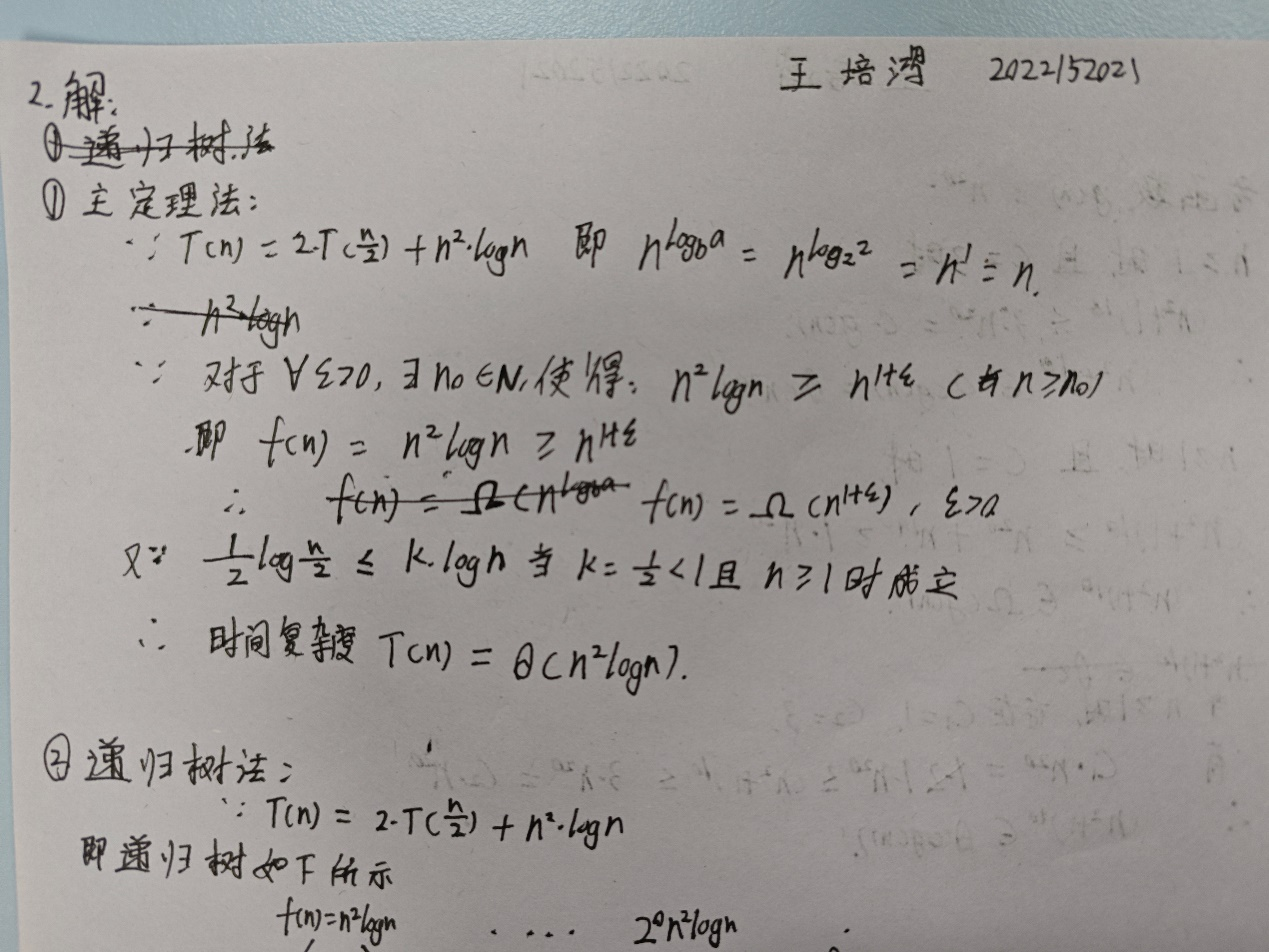 王培鸿 2022152021
2. 解:
① 递归树法
① 主定理法:
∵ T(n) = 2·T(n/2) + n²·logn 即 n^(log_b a) = n^(log_2 2) = n¹ = n.
∵ n²logn
∵ 对于 ∀ε>0, ∃n₀∈N, 使得: n²logn ≥ n^(1+ε) (当 n≥n₀)
即 f(n) = n²logn ≥ n^(1+ε)
∴ f(n) = Ω(n^(log_b a) f(n) = Ω(n^(1+ε)), ε>0
又∵ 1/2 log n/2 ≤ k·logn 当 k = 1/2 < 1 且 n≥1时成立
∴ 时间复杂度 T(n) = θ(n²logn).
② 递归树法:
∵ T(n) = 2·T(n/2) + n²·logn
即递归树如下所示
f(n)=n²logn ···· 2⁰n²logn